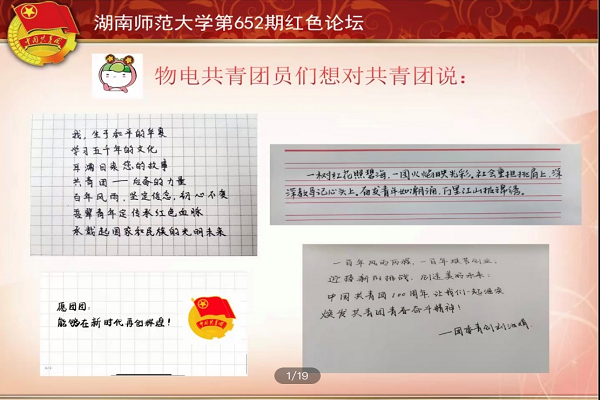 湖南师范大学第652期红色论坛
物电共青团员们想对共青团说：
我，生于和平的华夏
学习五千年的文化
耳濡目染您的故事
共青团——后备的力量
百年风雨，坚定信念，初心不变
吾辈青年定传承红色血脉
承载起国家和民族的光明未来
一树红花照碧海，一团火焰映光彩，社会重担挑肩上，深
深教导记心头上，奋发青年如潮涌，万里江山披锦绣。
愿团团：
能够在新时代再创辉煌！
一百年风雨历程，一百年艰苦创业，
迎接新的挑战，创造美好未来：
中国共青团100周年，让我们一起继续
焕发共青团青春奋斗精神！
1/19